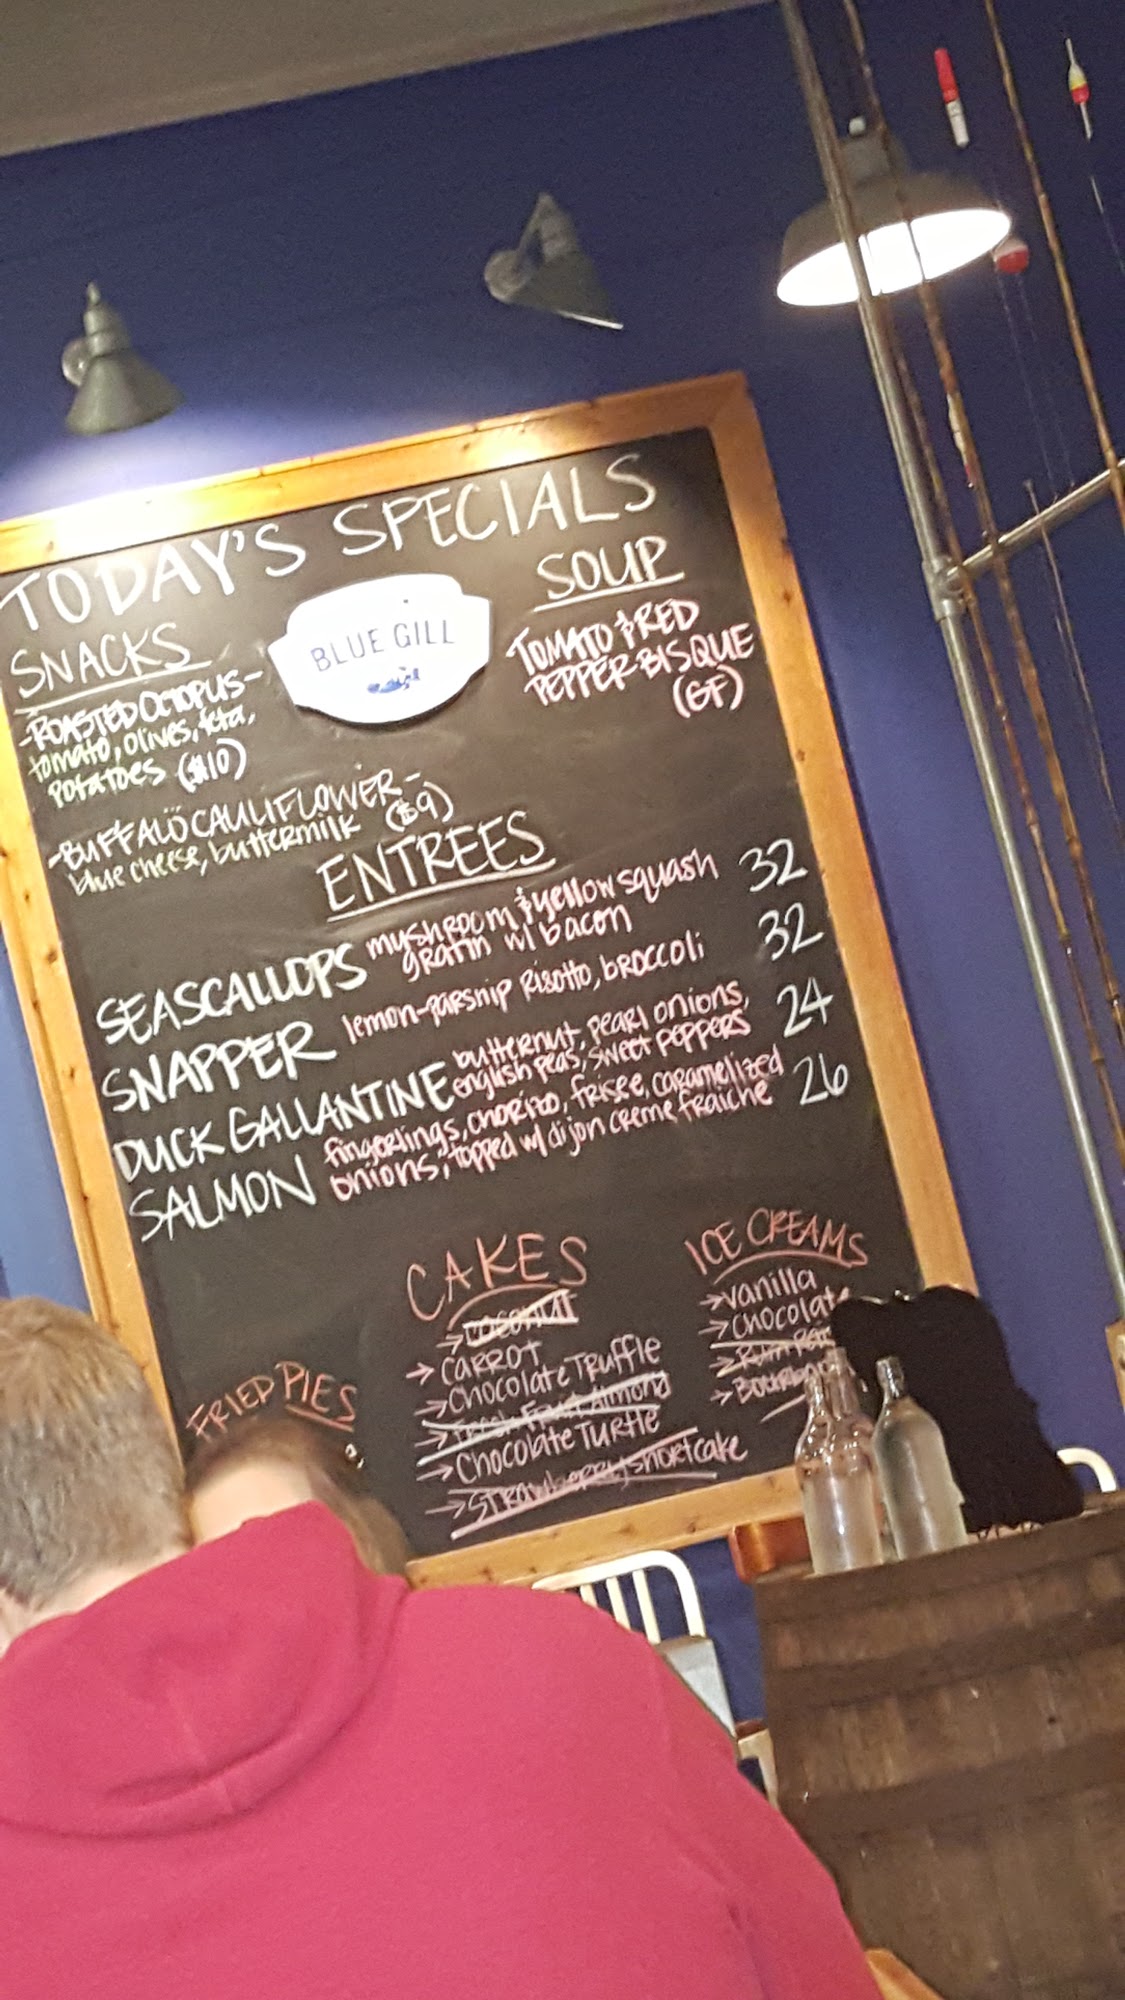 TODAY'S SPECIALS
BLUE GILL
SNACKS
-ROASTED OCTOPUS-
tomato, olives, feta,
potatoes ($10)
-BUFFALO CAULIFLOWER-
blue cheese, buttermilk ($9)
SOUP
TOMATO & RED
PEPPER BISQUE
(GF)
ENTREES
SEASCALLOPS mushroom & yellow squash 32
gratin w/ bacon
SNAPPER lemon-parsnip Risotto, broccoli 32
DUCK GALLANTINE butternut, pearl onions, 24
english peas, sweet peppers
SALMON fingerlings, chorizo, frisee, caramelized 26
onions, topped w/ dijon creme fraiche
FRIED PIES
CAKES
→ COCONUT
→ CARROT
→ Chocolate Truffle
→ Fresh Fruit Almond
→ Chocolate Turtle
→ Strawberry Shortcake
ICE CREAMS
→ Vanilla
→ Chocolate
→ Rum
→ Bourbon